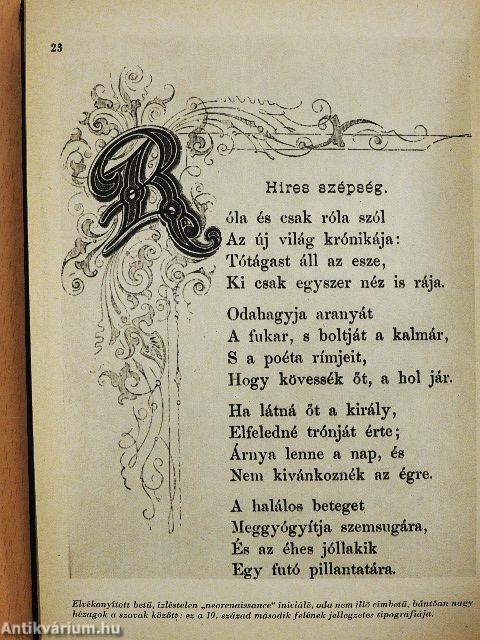 23
Hires szépség.
Róla és csak róla szól
Az új világ krónikája:
Tótágast áll az esze,
Ki csak egyszer néz is rája.
Odahagyja aranyát
A fukar, s boltját a kalmár,
S a poéta rímjeit,
Hogy kövessék őt, a hol jár.
Ha látná őt a király,
Elfeledné trónját érte;
Árnya lenne a nap, és
Nem kivánkoznék az égre.
A halálos beteget
Meggyógyítja szemsugára,
És az éhes jóllakik
Egy futó pillantatára.
Elvékonyított betű, izléstelen „neorenaissance" iniciálé, oda nem illő címbetű, bántóan nagy
hézagok a szavak között: ez a 19. század második felének jellegzetes tipográfiája.
Antikvárium.hu